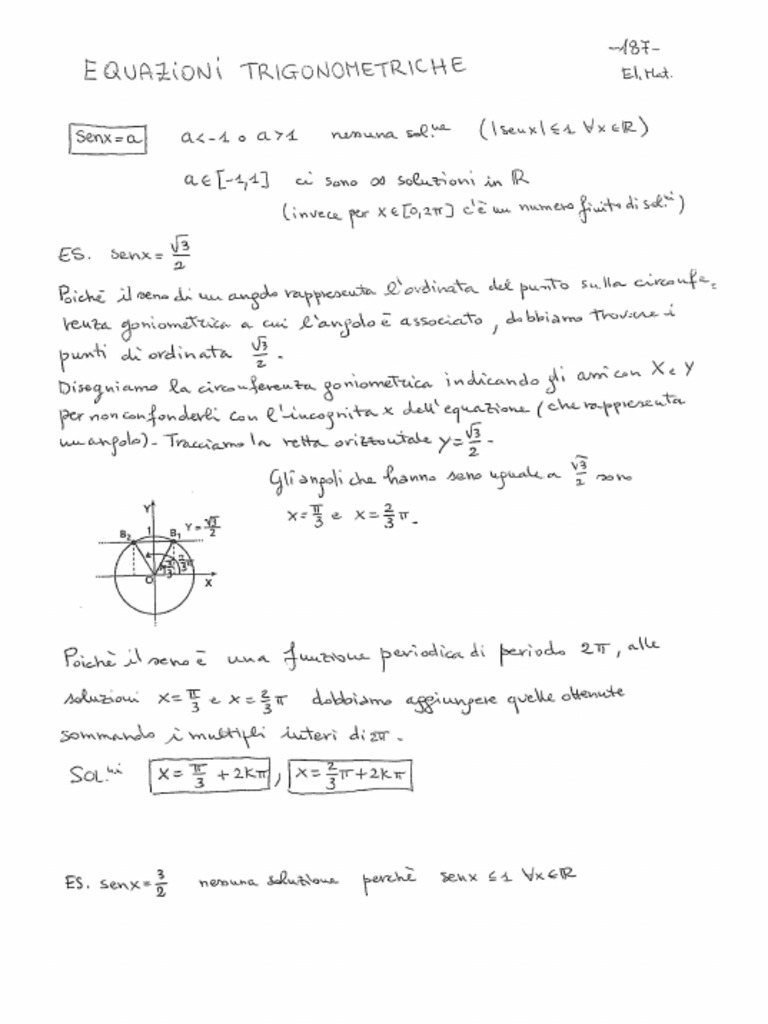 -187-
EQUAZIONI TRIGONOMETRICHE
El. Mat.
senx=a a<-1 o a>1 nessuna sol.ne (|senx|≤1 ∀x∈ℝ)
a∈[-1,1] ci sono ∞ soluzioni in ℝ
(invece per x∈[0,2π] c'è un numero finito di sol.ni)
ES. senx=√3/2
Poichè il seno di un angolo rappresenta l'ordinata del punto sulla circonfe-
renza goniometrica a cui l'angolo è associato, dobbiamo trovare i
punti di ordinata √3/2.
Disegniamo la circonferenza goniometrica indicando gli assi con X e Y
per non confonderli con l'incognita x dell'equazione (che rappresenta
un angolo). Tracciamo la retta orizzontale Y=√3/2.
Gli angoli che hanno seno uguale a √3/2 sono
x=π/3 e x=2/3π.
Y
B₂ 1 B₁ Y=√3/2
π/3 2/3π
O X
Poichè il seno è una funzione periodica di periodo 2π, alle
soluzioni x=π/3 e x=2/3π dobbiamo aggiungere quelle ottenute
sommando i multipli interi di 2π.
SOL.ni x=π/3+2kπ, x=2/3π+2kπ
ES. senx=3/2 nessuna soluzione perchè senx≤1 ∀x∈ℝ